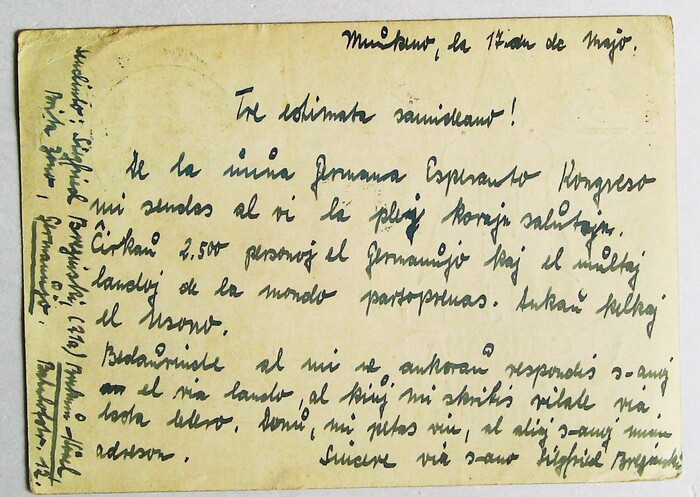 Munkeno, la 17an de Majo.
Tre estimata samideano!
De la unua Germana Esperanto Kongreso
mi sendas al vi la plej korajn salutojn.
Ĉirkaŭ 2.500 personoj el Germanujo kaj el multaj
landoj de la mondo partoprenas. Ankaŭ kelkaj
el Usono.
Bedaŭrinde al mi ne ankoraŭ respondis s-anoj
el via lando, al kiuj mi skribis rilate via
lasta letero. Donu, mi petas vin, al aliaj s-anoj mian
adreson. Sincere via s-ano Sigfried Breginski
sendinto: Sigfried Breginski, (21a)
Germanujo,